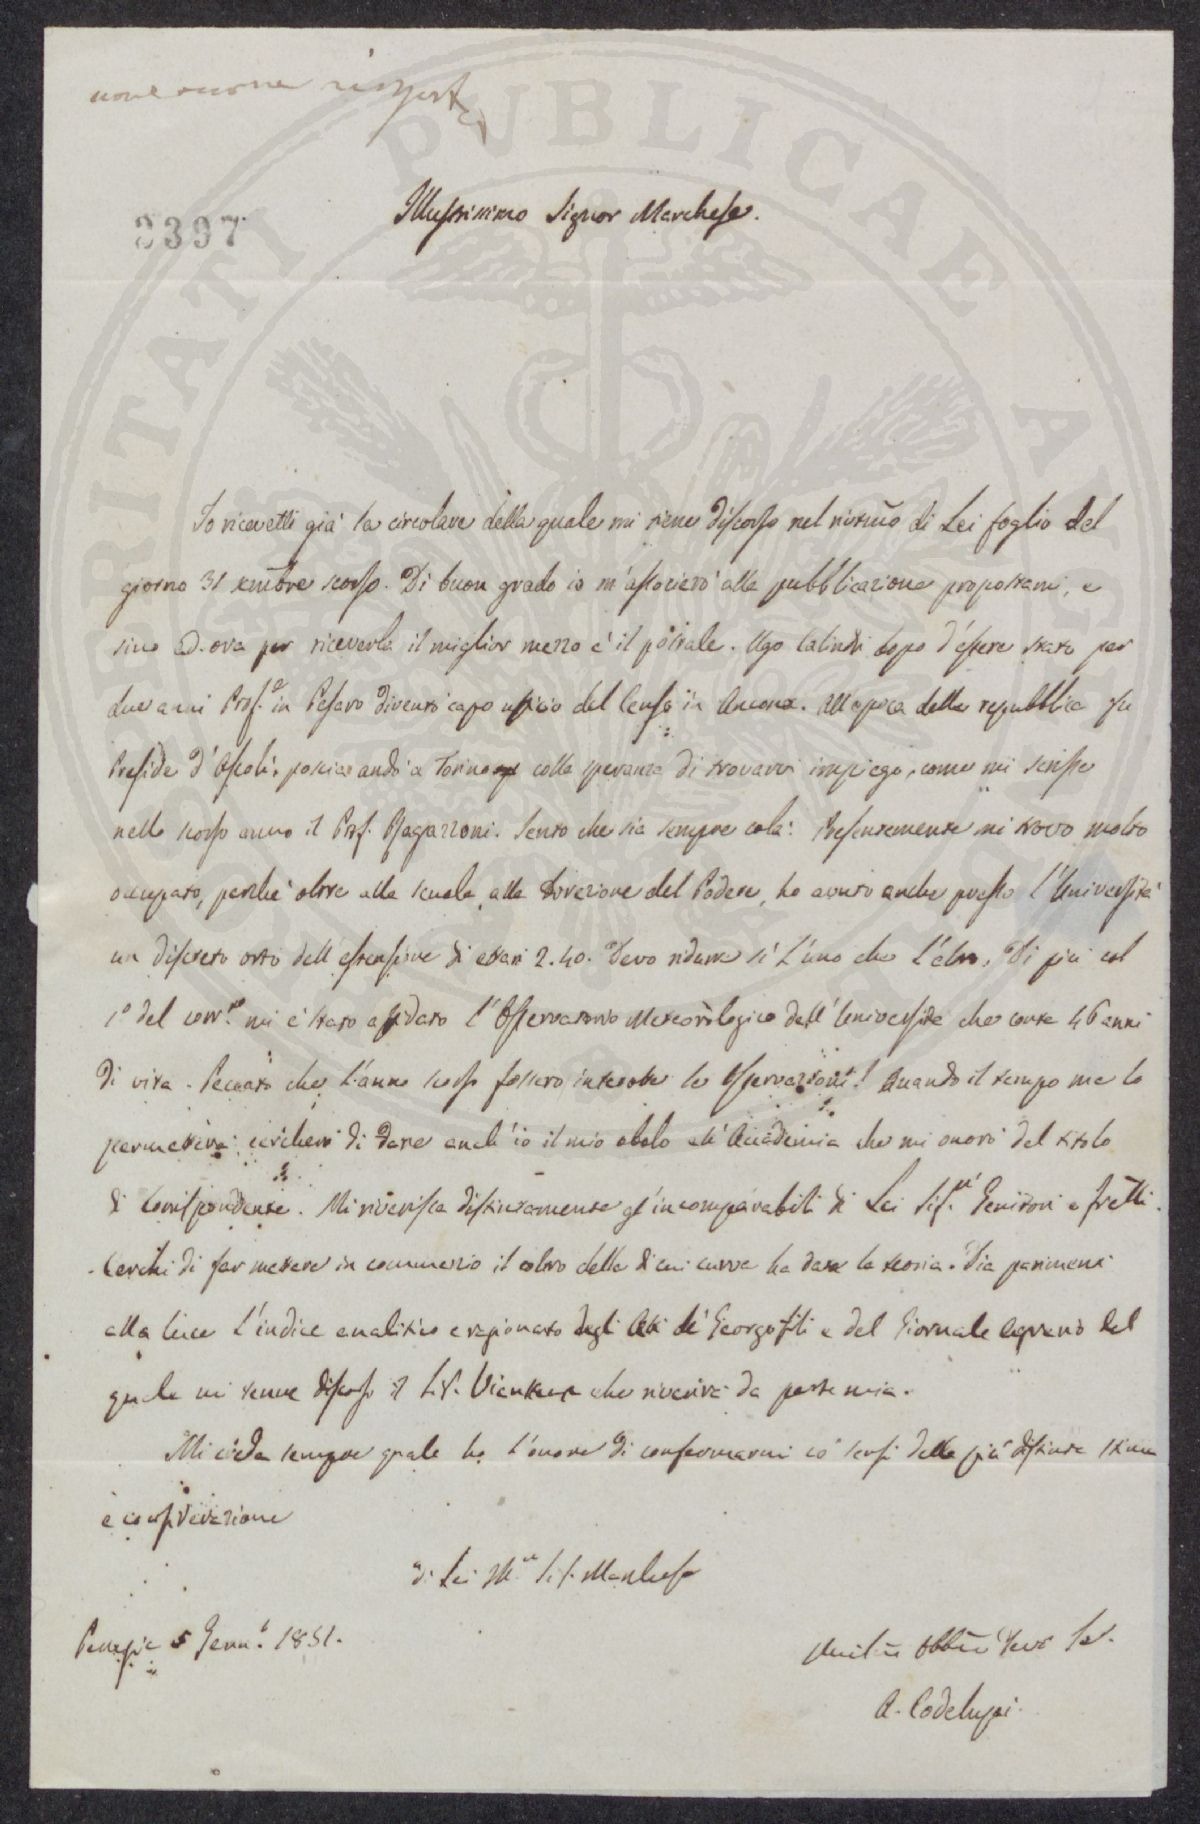 non occorre risposta
Illustrissimo Signor Marchese.
2397
PROSPERITATI PUBLICAE AUGENDAE
Io ricevetti già la circolare della quale mi tiene discorso nel riverito di Lei foglio del
giorno 31 xembre scorso. Di buon grado io m'associerò alla pubblicazione propostami, e
sino ad ora per riceverla il miglior mezzo è il postale. Ugo Calindri dopo d'essere stato per
due anni Prof.e in Pesaro diventò capo uficio del Censo in Ancona. All'epoca della repubblica fu
Preside d'Ascoli, poscia andò a Torino colla speranza di trovarvi impiego, come mi scrisse
nello scorso anno il Prof. Ragazzoni. Sento che sia sempre colà. Presentemente mi trovo molto
occupato, perchè oltre alla scuola, alla direzione del Podere, ho avuto anche presso l'Università
un discreto orto dell'estensione di ettari 2.40. Devo ridurre sì l'uno che l'altro. Di più col
1.° del corr.te mi è stato affidato l'Osservatorio Meteorologico dell'Università che conta 46 anni
di vita. Peccato che l'anno scorso fossero interrotte le osservazioni! Quando il tempo me lo
permetterà cercherò di dare anch'io il mio obolo all'Accademia che mi onorò del titolo
di Corrispondente. Mi riverisca distintamente gl'incomparabili di Lei Sig.ri Genitori e fratelli.
Cerchi di far mettere in commercio il coltro della di cui curva ha data la teoria. Dia parimenti
alla luce l'indice analitico e ragionato degli Atti de' Georgofili e del Giornale Agrario del
quale mi tenne discorso il Sig. Vieusseux che riverirà da parte mia.
Mi creda sempre quale ho l'onore di confermarmi co' sensi della più distinta stima
e considerazione
di Lei Ill.mo Sig. Marchese
Perugia 5 Genn.o 1851.
Umil.mo Obbl.mo Dev.o Ser.
A. Codelupi.